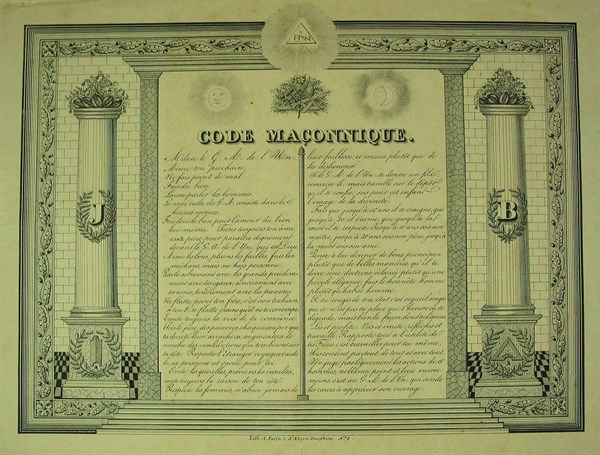 J
B
CODE MAÇONNIQUE.
Adore le G. A. de l'Un.
Aime ton prochain
Ne fais point de mal
Fais du bien
Laisse parler les hommes.
Le vrai culte du G. A. consiste dans les
bonnes mœurs
Fais donc le bien pour l'amour du bien
lui même. Tiens toujours ton âme
assez pure pour paraître dignement
devant le G. A. de l'Un. qui est Dieu
Aime les bons, plains les faibles, fuis les
méchans, mais ne hais personne.
Parle sobrement avec les grands, prudem-
ment avec tes égaux, sincèrement avec
tes amis, tendrement avec les pauvres
Ne flatte point ton frère, c'est une trahison,
si ton F. te flatte crains qu'il ne te corrompe
Ecoute toujours la voix de ta conscience
Sois le père des pauvres chaque soupir que
ta dureté leur arrachera, augmentera le
nombre des malédictions qui tomberont sur
ta tête. Respecte l'étranger voyageur, aide
le sa personne est sacrée pour toi
Evite les querelles, préviens les insultes,
mets toujours la raison de ton côté.
Respecte les femmes, n'abuse jamais de
leur faiblesse, et meurs plutôt que de
les déshonorer
Si le G. A. de l'Un. te donne un fils
remercie le, mais tremble sur le dépôt
qu'il te confie, sois pour cet enfant
l'image de la divinité.
Fais que jusqu'à 10 ans il te craigne, que
jusqu'à 20 il t'aime, que jusqu'à ta
mort il te respecte. Jusqu'à 10 ans sois son
maître, jusqu'à 20 ans sois son père, jusqu'à
la mort sois son ami.
Pense à lui donner de bons principes
plutôt que de belles manières, qu'il te
doive une droiture éclairée, plutôt qu'une
frivole élégance, fais le honnête homme
plutôt qu'habile homme.
Si tu rougis de ton état c'est orgueil, songe
que ce n'est pas ta place qui t'honore ou te
dégrade, mais bien la façon dont tu l'exerces
Lis et profite. Vois et imite, réfléchis et
travaille. Rapporte tout à l'utilité de
tes Frères c'est travailler pour toi même.
Sois content partout de tout et avec tout.
Ne juge pas légèrement les actions des
hommes, ne blâme point et loue encore
moins c'est au G. A. de l'Un. qui sonde
les cœurs à apprécier son ouvrage.